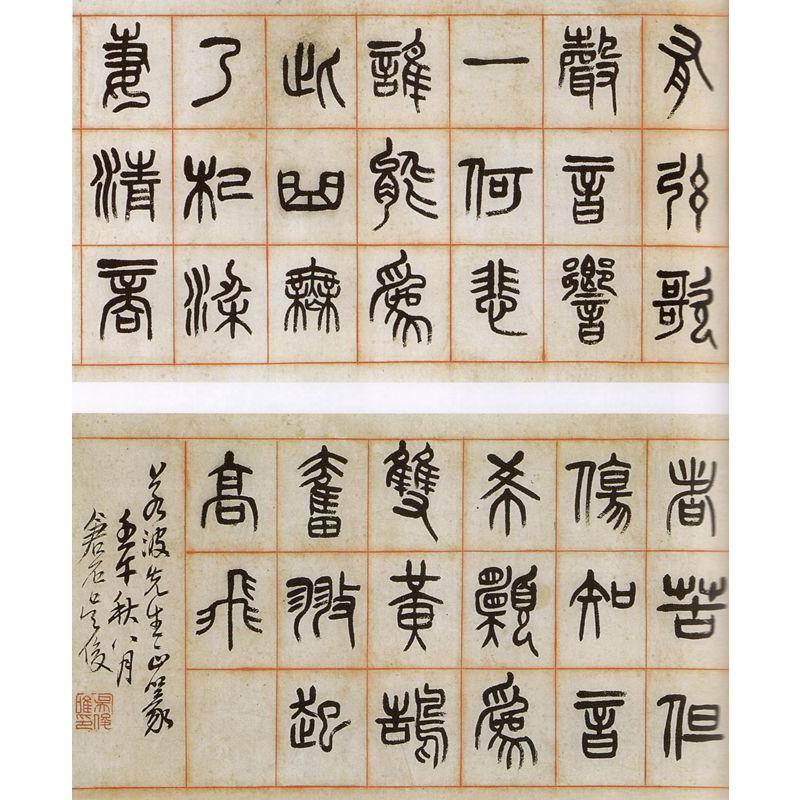 有弦歌
聲音響
一何悲
誰能爲
此曲無
乃杞梁
妻清商
者苦但
傷知音
希願爲
雙黃鵠
奮翅起
高飛
若波先生正篆
壬午秋八月
倉石吳俊